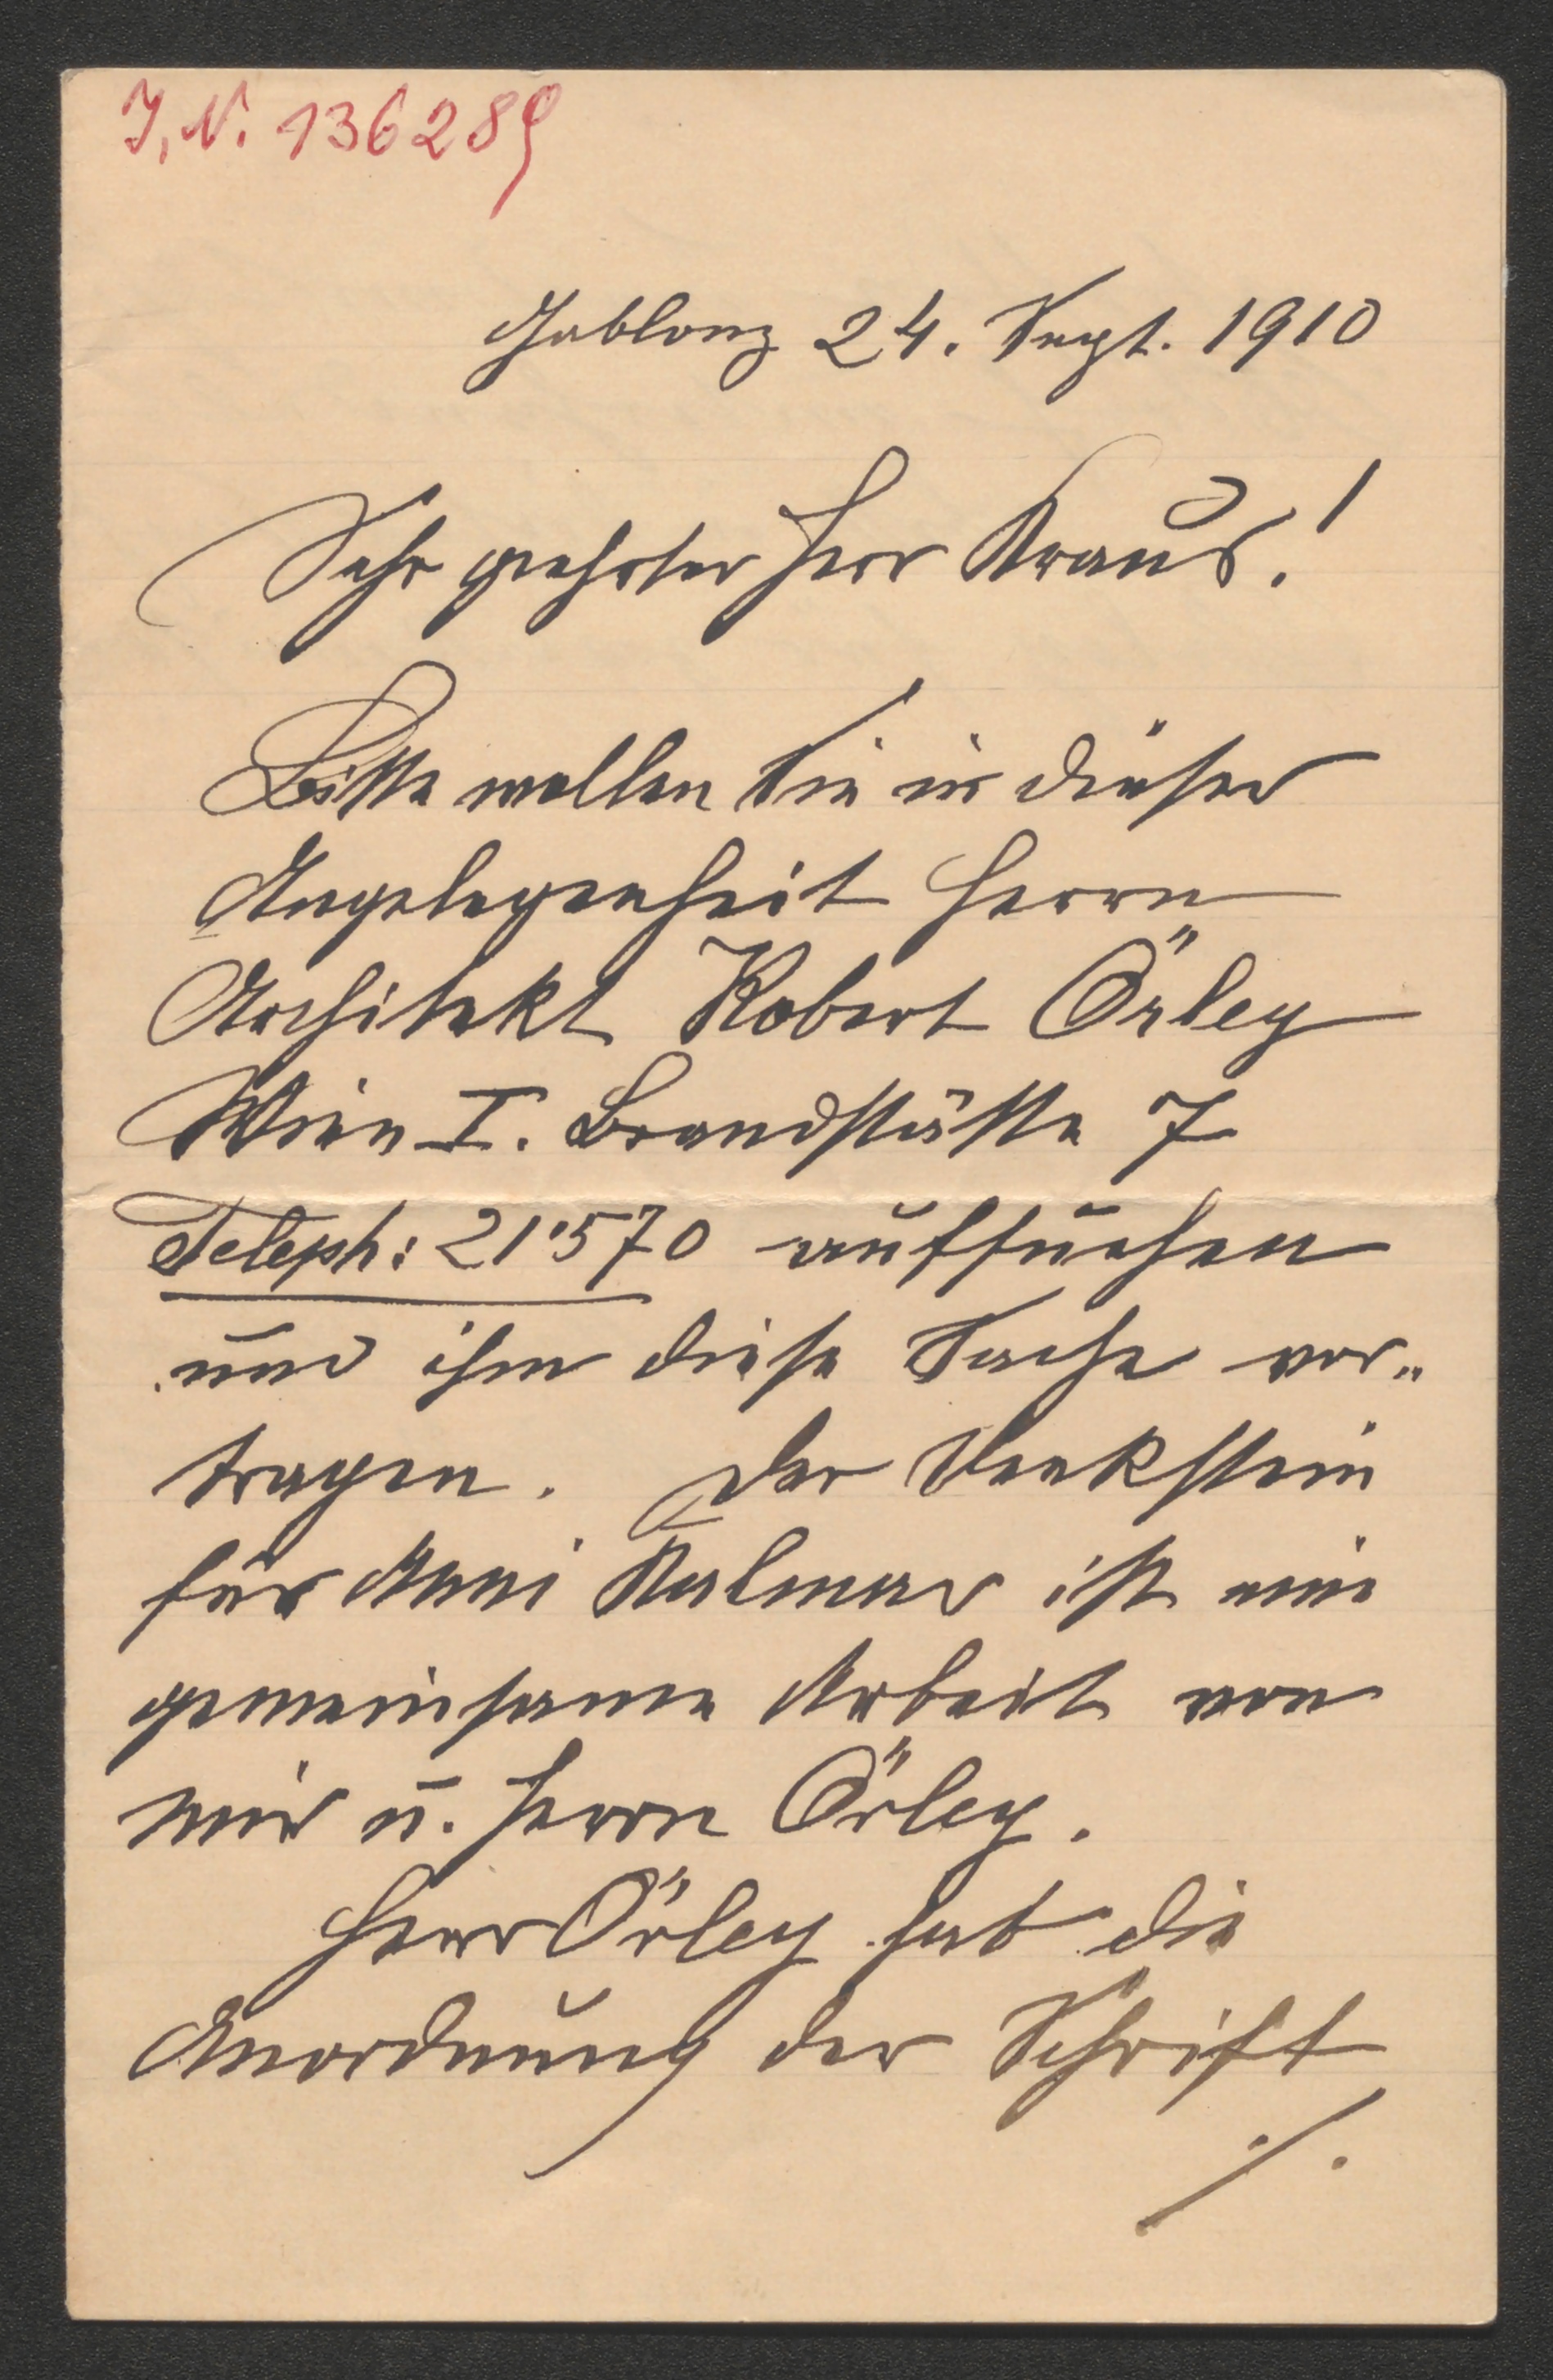 I. N. 136289
Gablonz 24. Sept. 1910
Sehr geehrter Herr Kraus!
Bitte wollen Sie in dieser
Angelegenheit Herrn
Architekt Robert Örley
Wien I. Brandstätte 7
Teleph: 21'570 aufsuchen
und ihm diese Sache vor„
tragen. Der Denkstein
für Anni Kalmar ist eine
gemeinsame Arbeit von
mir u. Herrn Örley.
Herr Örley hat die
Anordnung der Schrift
./.